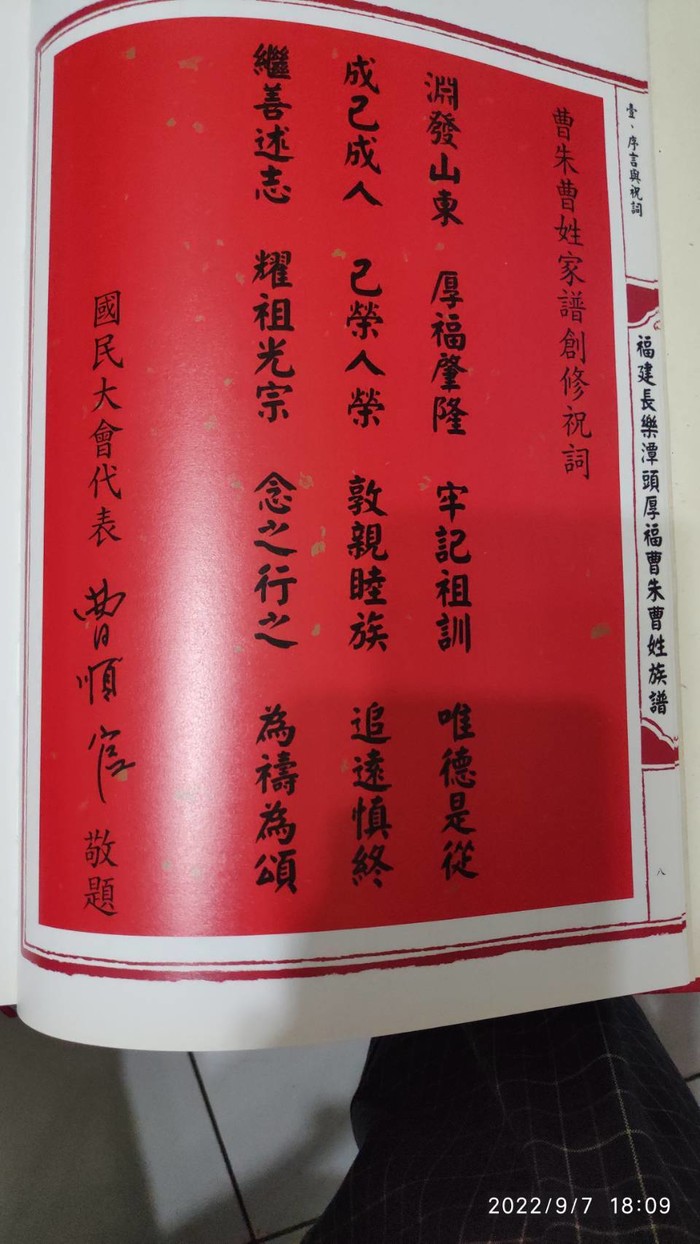 壹、序言與祝詞
福建長樂潭頭厚福曹朱曹姓族譜
八
曹朱曹姓家譜創修祝詞
淵發山東 厚福肇隆 牢記祖訓 唯德是從
成己成人 己榮人榮 敦親睦族 追遠慎終
繼善述志 耀祖光宗 念之行之 為禱為頌
國民大會代表 曹順官 敬題
2022/9/7 18:09